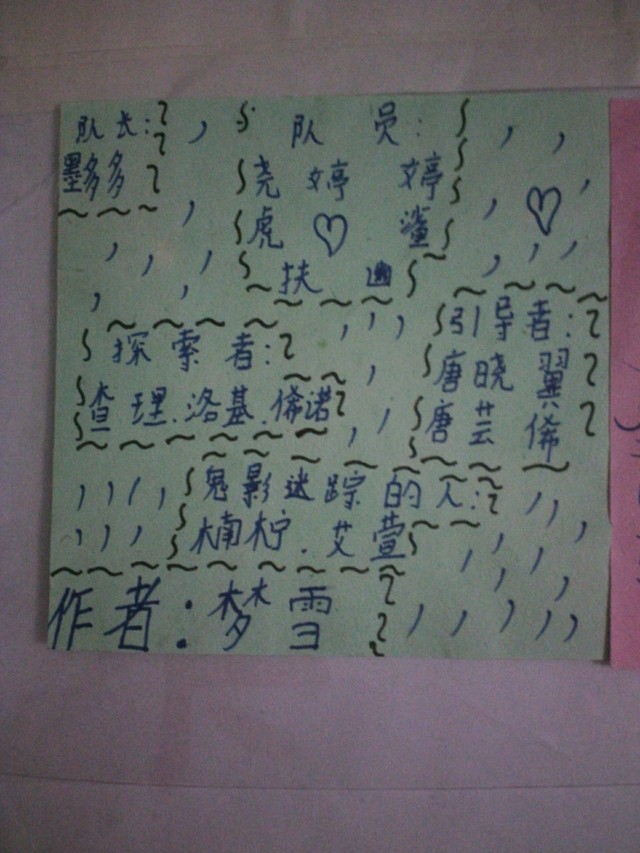 队长:
墨多多
队员:
尧婷婷
虎♡鲨
扶幽
♡
探索者:
查理.洛基.俙诺
引导者:
唐晓翼
唐芸俙
鬼影迷踪的人:
楠柠.艾萱
作者:梦雪